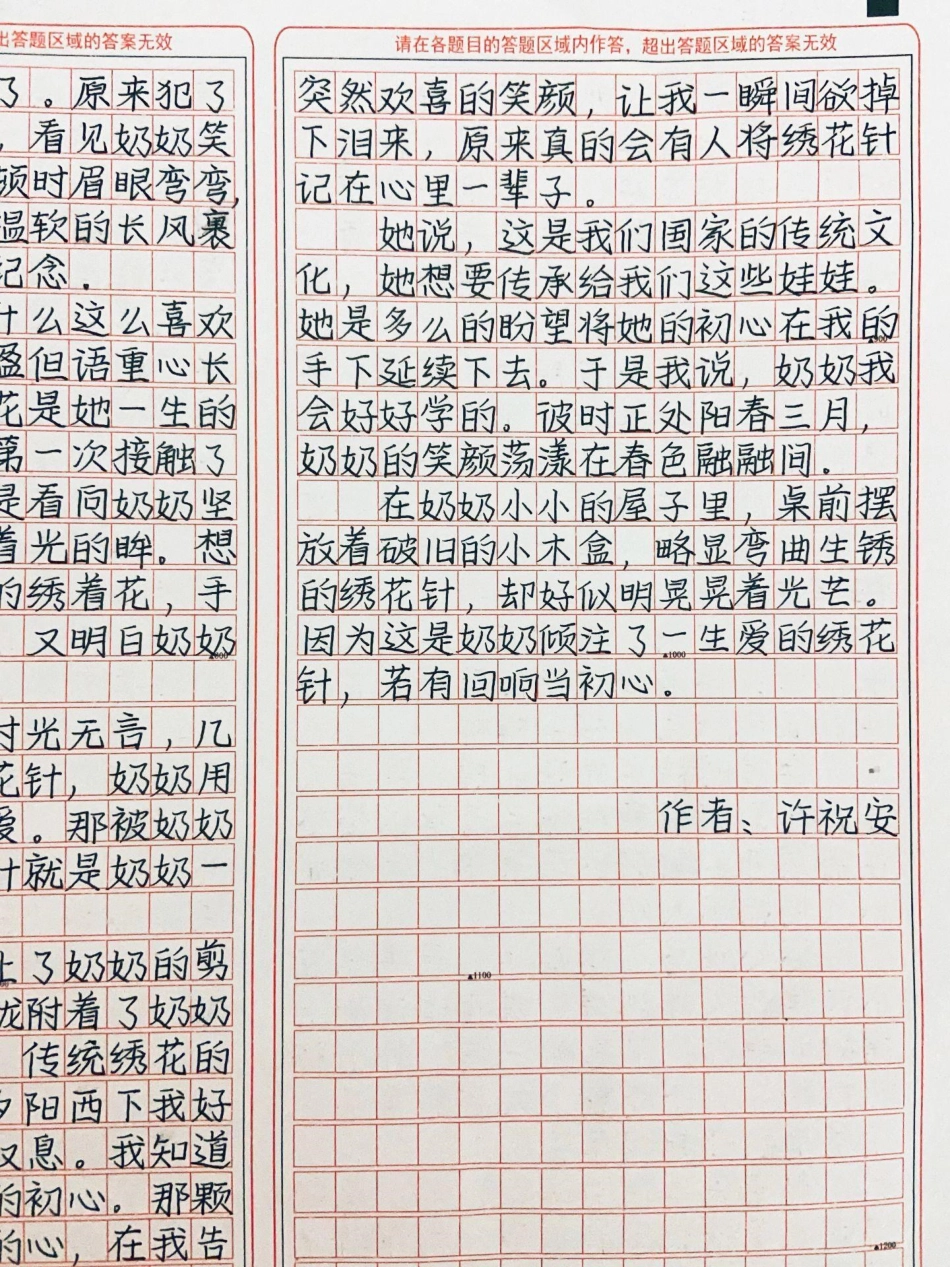 出答题区域的答案无效
了。原来犯了
，看见奶奶笑
顿时眉眼弯弯，
温软的长风裹
纪念.
什么这么喜欢
盈但语重心长
花是她一生的
第一次接触了
是看向奶奶坚
着光的眸。想
的绣着花，手
又明白奶奶
▲800
时光无言，几
花针，奶奶用
爱。那被奶奶
针就是奶奶一
上了奶奶的剪
拢附着了奶奶
传统绣花的
夕阳西下我好
叹息。我知道
的初心。那颗
的心，在我告
请在各题目的答题区域内作答，超出答题区域的答案无效
突然欢喜的笑颜，让我一瞬间欲掉
下泪来，原来真的会有人将绣花针
记在心里一辈子。
她说，这是我们国家的传统文
化，她想要传承给我们这些娃娃。
她是多么的盼望将她的初心在我的
▲900
手下延续下去。于是我说，奶奶我
会好好学的。彼时正处阳春三月，
奶奶的笑颜荡漾在春色融融间.
在奶奶小小的屋子里，桌前摆
放着破旧的小木盒，略显弯曲生锈
的绣花针，却好似明晃晃着光芒。
因为这是奶奶倾注了一生爱的绣花
▲1000
针，若有回响当初心。
作者：许祝安
▲1100
▲1200